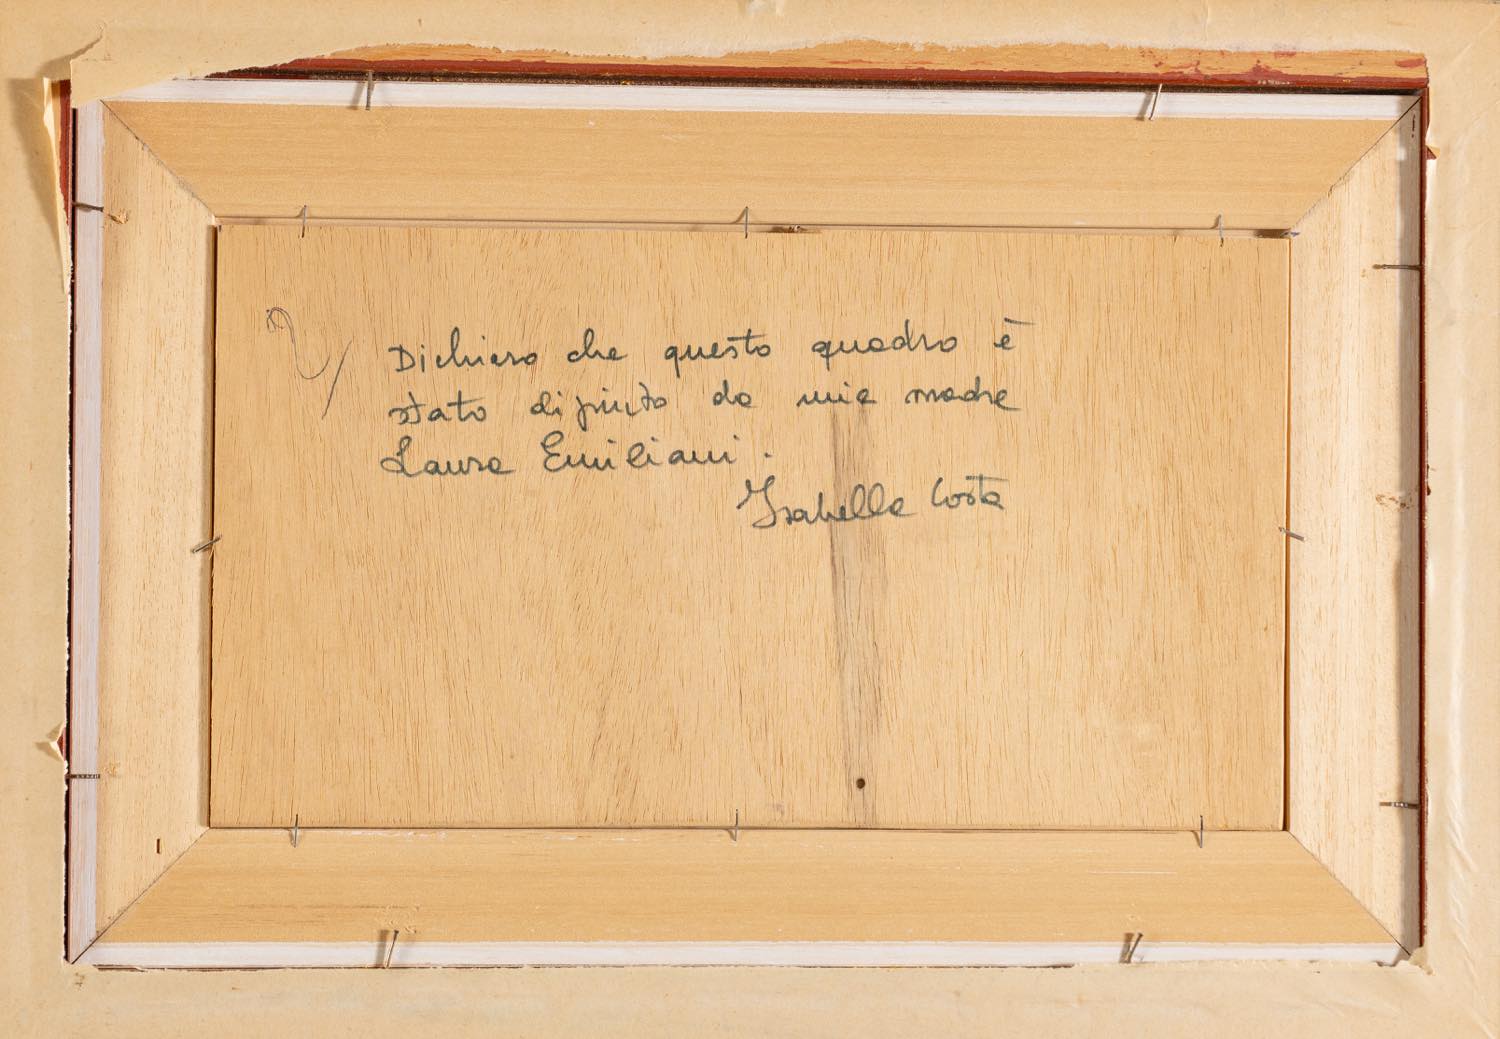 2/
Dichiaro che questo quadro è
stato dipinto da mia madre
Laura Emiliani.
Isabella Costa